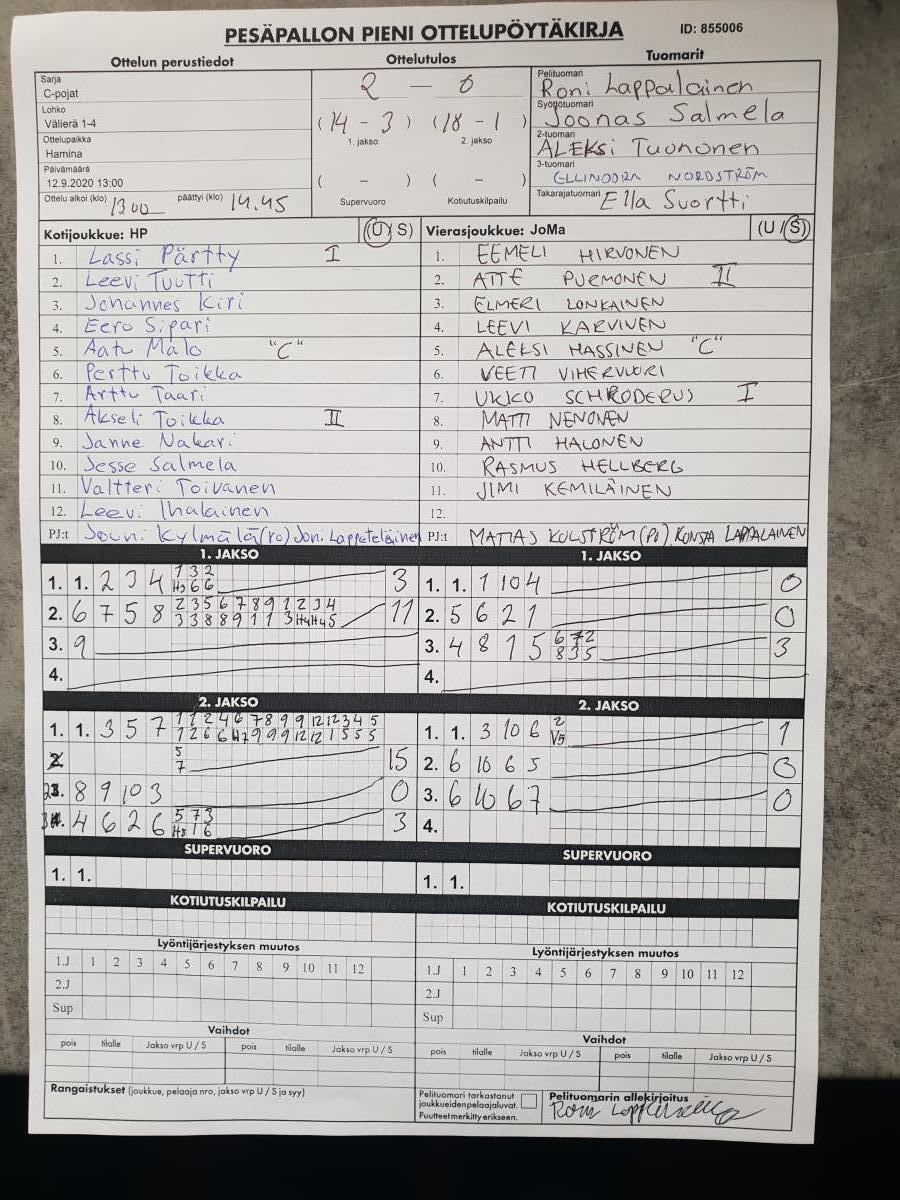 PESÄPALLON PIENI OTTELUPÖYTÄKIRJA
ID: 855006
Ottelun perustiedot
Sarja
C-pojat
Lohko
Välierä 1-4
Ottelupaikka
Hamina
Päivämäärä
12.9.2020 13:00
Ottelu alkoi (klo) 1300 päättyi (klo) 14.45
Ottelutulos
2 - 0
(14 - 3) (18 - 1)
1. jakso 2. jakso
( - ) ( - )
Supervuoro Kotiutuskilpailu
Tuomarit
Pelituomari
Roni Lappalainen
Syöttötuomari
Joonas Salmela
2-tuomari
ALEKSI TUONONEN
3-tuomari
ELLINOORA NORDSTRÖM
Takarajatuomari
Ella Suortti
Kotijoukkue: HP (U/S)
1. Lassi Pärtty I
2. Leevi Tuutti
3. Johannes Kiri
4. Eero Sipari
5. Aatu Malo "C"
6. Perttu Toikka
7. Arttu Taari
8. Akseli Toikka II
9. Janne Nakari
10. Jesse Salmela
11. Valtteri Toivanen
12. Leevi Ihalainen
PJ:t Jouni Kylmälä (PJ) Joni Lappeteläinen
Vierasjoukkue: JoMa (U/S)
1. EEMELI HIRVONEN
2. ATTE PURMONEN II
3. ELMERI LONKAINEN
4. LEEVI KARVINEN
5. ALEKSI HASSINEN "C"
6. VEETI VIHERVUORI
7. UKKO SCHRODERUS I
8. MATTI NENONEN
9. ANTTI HALONEN
10. RASMUS HELLBERG
11. JIMI KEMILÄINEN
12.
PJ:t KONSTA LAPPALAINEN
1. JAKSO
1. 1. 2 3 4 1 3 2 3
H3 6 6
2. 6 7 5 8 2 3 5 6 7 8 9 1 2 3 4 11
3 3 8 8 9 1 1 3 H4 H4 5
3. 9
4.
1. JAKSO
1. 1. 1 10 4 0
2. 5 6 2 1 0
3. 4 8 1 5 6 7 2 3
8 3 5
4.
2. JAKSO
1. 1. 3 5 7 1 1 2 4 6 7 8 9 9 12 12 3 4 5
1 2 6 6 H7 9 9 9 12 12 1 5 5 5
5 15
7
2. 8 9 10 3 0
3. 4 6 2 6 5 7 3 3
H8 1 6
2. JAKSO
1. 1. 3 10 6 2 1
V5
2. 6 10 6 5 0
3. 6 10 6 7 0
4.
SUPERVUORO
1. 1.
SUPERVUORO
1. 1.
KOTIUTUSKILPAILU
KOTIUTUSKILPAILU
Lyöntijärjestyksen muutos
1.J 1 2 3 4 5 6 7 8 9 10 11 12
2.J
Sup
Lyöntijärjestyksen muutos
1.J 1 2 3 4 5 6 7 8 9 10 11 12
2.J
Sup
Vaihdot
pois tilalle Jakso vrp U / S pois tilalle Jakso vrp U / S
Vaihdot
pois tilalle Jakso vrp U / S pois tilalle Jakso vrp U / S
Rangaistukset (joukkue, pelaaja nro, jakso vrp U / S ja syy)
Pelituomari tarkastanut
joukkueiden pelaajaluvat.
Puutteet merkitty erikseen.
Pelituomarin allekirjoitus
Roni Lappalainen